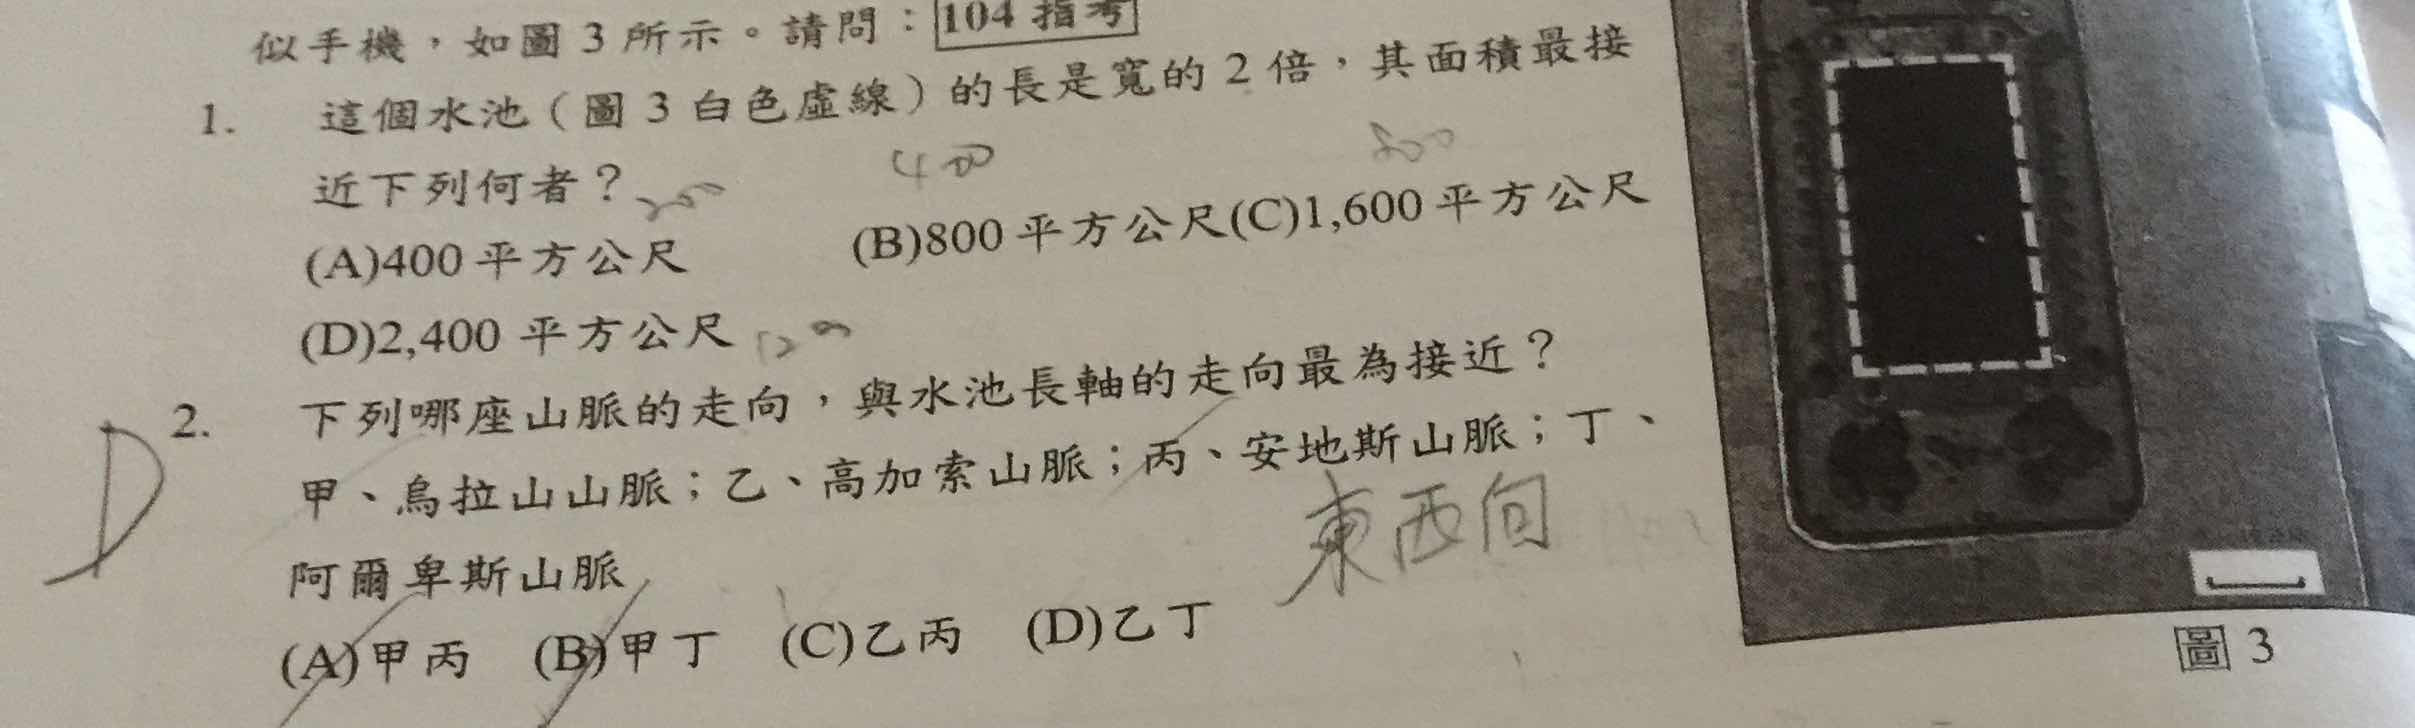 似手機，如圖 3 所示。請問：104 指考
1. 這個水池（圖 3 白色虛線）的長是寬的 2 倍，其面積最接
近下列何者？
400
(A)400 平方公尺 (B)800 平方公尺(C)1,600 平方公尺
(D)2,400 平方公尺
D
2. 下列哪座山脈的走向，與水池長軸的走向最為接近？
甲、烏拉山山脈；乙、高加索山脈；丙、安地斯山脈；丁、
阿爾卑斯山脈
東西向
(A)甲丙 (B)甲丁 (C)乙丙 (D)乙丁
圖 3